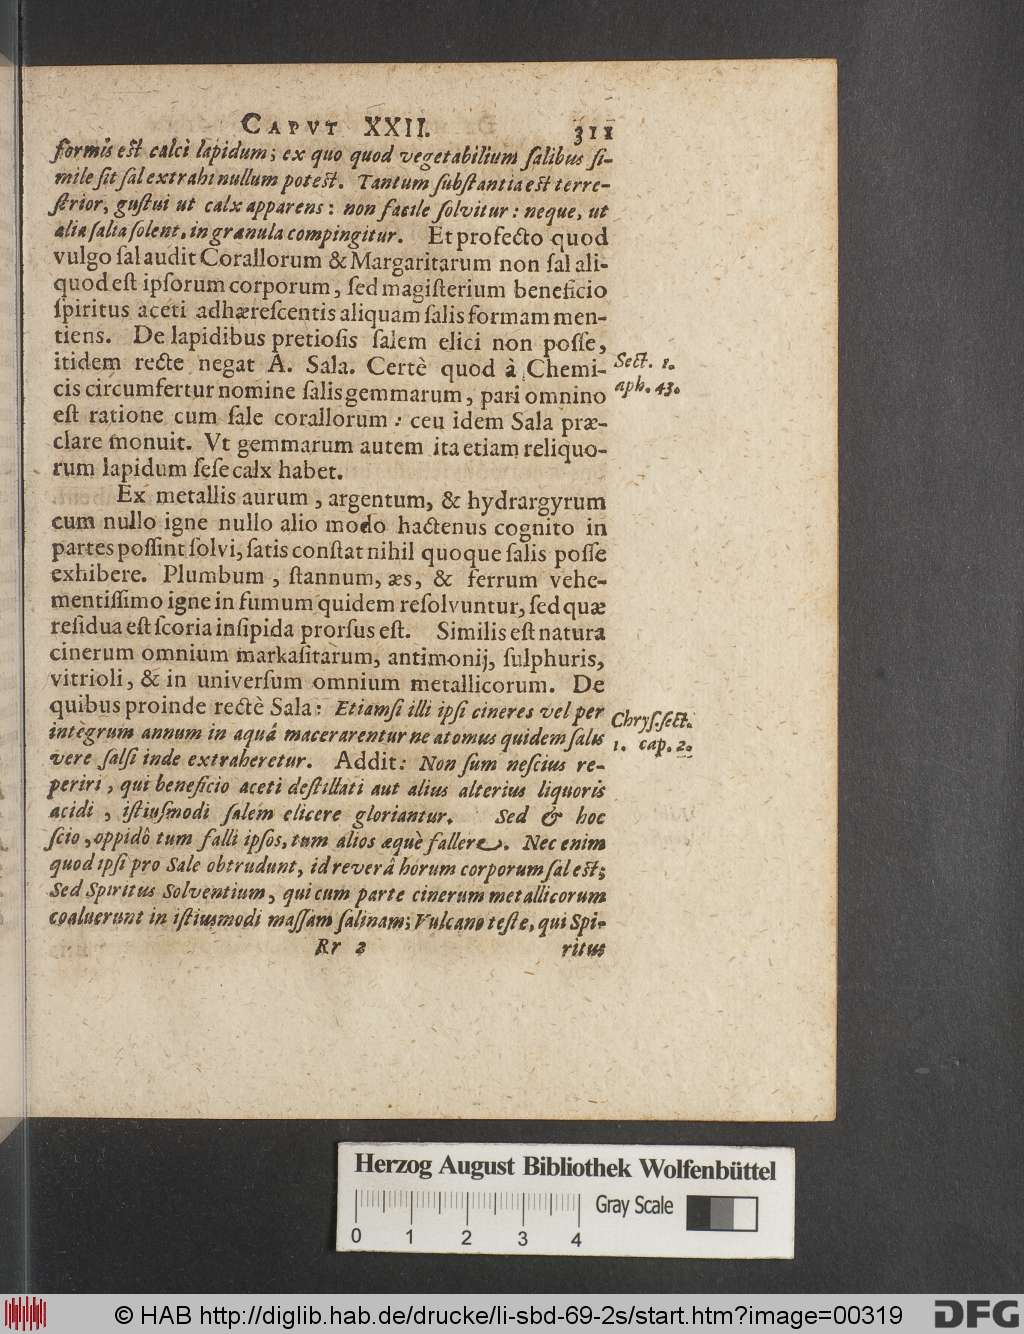 CAPVT XXII. 311
formis est calci lapidum; ex quo quod vegetabilium salibus si-
mile sit sal extrahi nullum potest. Tantum substantia est terre-
strior, gustui ut calx apparens: non facile solvitur: neque, ut
alia salia solent, in granula compingitur. Et profecto quod
vulgo sal audit Corallorum & Margaritarum non sal ali-
quod est ipsorum corporum, sed magisterium beneficio
spiritus aceti adhærescentis aliquam salis formam men-
tiens. De lapidibus pretiosis salem elici non posse,
itidem recte negat A. Sala. Certè quod à Chemi-
Sect. 1.
aph. 43.
cis circumfertur nomine salis gemmarum, pari omnino
est ratione cum sale corallorum: ceu idem Sala præ-
clare monuit. Vt gemmarum autem ita etiam reliquo-
rum lapidum sese calx habet.
Ex metallis aurum, argentum, & hydrargyrum
cum nullo igne nullo alio modo hactenus cognito in
partes possint solvi, satis constat nihil quoque salis posse
exhibere. Plumbum, stannum, æs, & ferrum vehe-
mentissimo igne in fumum quidem resolvuntur, sed quæ
residua est scoria insipida prorsus est. Similis est natura
cinerum omnium markasitarum, antimonij, sulphuris,
vitrioli, & in universum omnium metallicorum. De
quibus proinde rectè Sala: Etiamsi illi ipsi cineres vel per
Chrys. sect.
1. cap. 2.
integrum annum in aquâ macerarentur ne atomus quidem salis
vere salsi inde extraheretur. Addit: Non sum nescius re-
periri, qui beneficio aceti destillati aut alius alterius liquoris
acidi, istiusmodi salem elicere gloriantur. Sed & hoc
scio, oppidò tum falli ipsos, tum alios æquè fallere. Nec enim
quod ipsi pro Sale obtrudunt, id reverâ horum corporum sal est;
Sed Spiritus Solventium, qui cum parte cinerum metallicorum
coaluerunt in istiusmodi massam salinam; Vulcano teste, qui Spi-
Rr 2 ritus
Herzog August Bibliothek Wolfenbüttel
Gray Scale
0 1 2 3 4
© HAB http://diglib.hab.de/drucke/li-sbd-69-2s/start.htm?image=00319
DFG